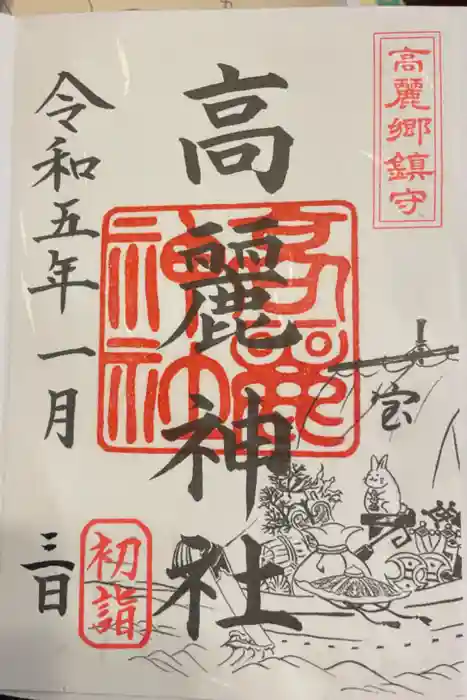 高麗郷鎮守
高麗神社
高麗神社
宝
令和五年一月
三日
初詣